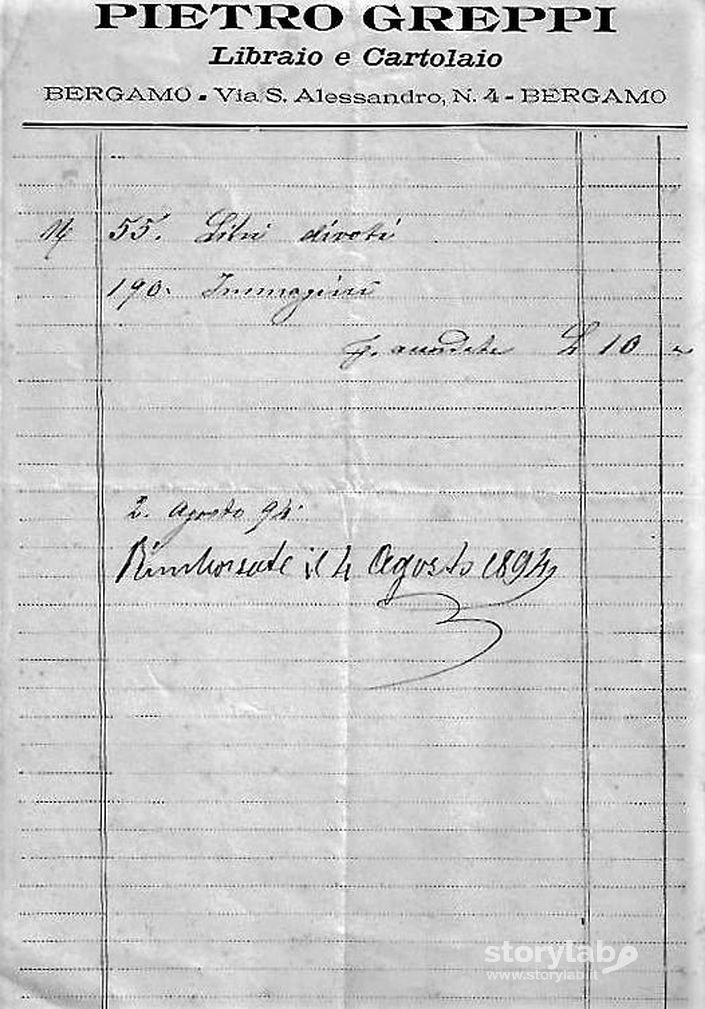 PIETRO GREPPI
Libraio e Cartolaio
BERGAMO - Via S. Alessandro, N. 4 - BERGAMO
55. Libri divoti
190. Immagini
L 10 -
2. Agosto 94.
Rimborsate il 4 Agosto 1894
storylab
www.storylab.it